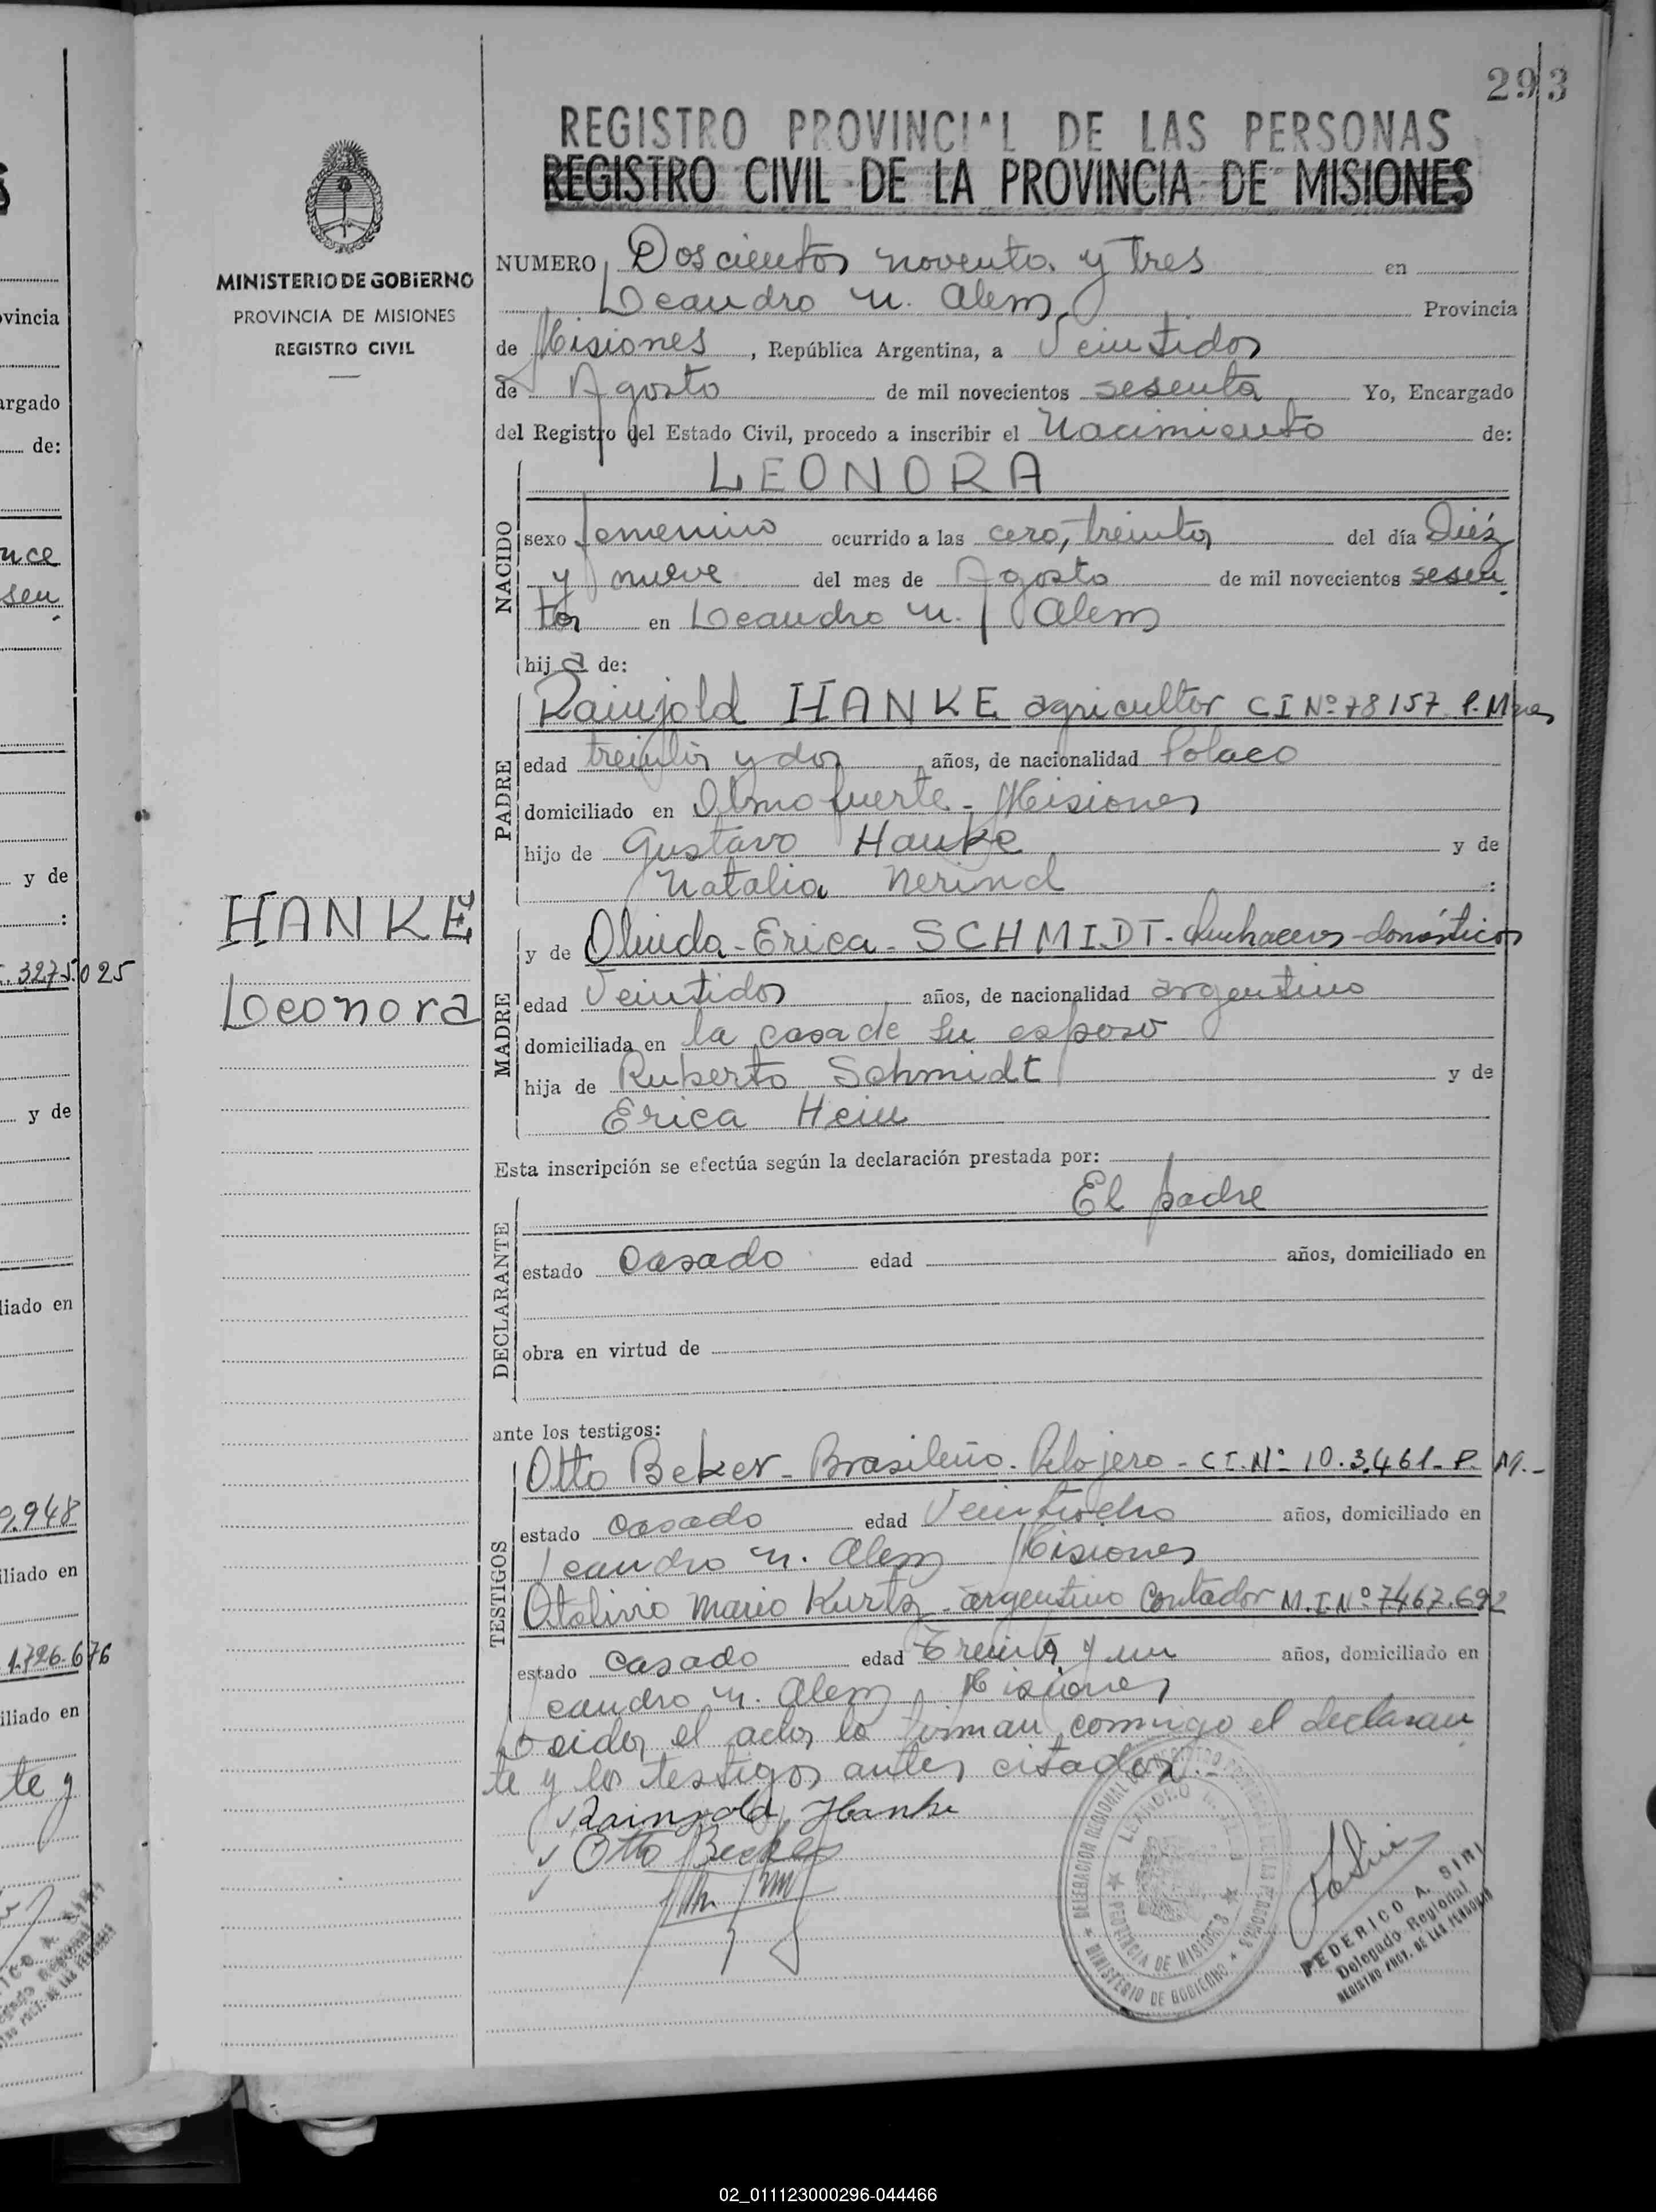 293
REGISTRO PROVINCIAL DE LAS PERSONAS
REGISTRO CIVIL DE LA PROVINCIA DE MISIONES
MINISTERIO DE GOBIERNO
PROVINCIA DE MISIONES
REGISTRO CIVIL
NUMERO Doscientos noventa y tres en
Leandro N. Alem Provincia
de Misiones, República Argentina, a Veintidos
de Agosto de mil novecientos sesenta Yo, Encargado
del Registro del Estado Civil, procedo a inscribir el Nacimiento de:
NACIDO
LEONORA
sexo femenino ocurrido a las cero, treinta del día Diéz
y nueve del mes de Agosto de mil novecientos sesen
ta en Leandro N. Alem
hija de:
PADRE
Raingold HANKE agricultor CI Nº 78157 P. Mnes
edad treinta y dos años, de nacionalidad Polaco
domiciliado en Olmo fuerte - Misiones
hijo de Gustavo Hanke y de
Natalia Nerind :
HANKE
Leonora
MADRE
y de Olinda - Erica - SCHMIDT - Quehaceres - domésticos
edad Veintidos años, de nacionalidad argentina
domiciliada en la casa de su esposo
hija de Ruberto Schmidt y de
Erica Hein
Esta inscripción se efectúa según la declaración prestada por:
El padre
DECLARANTE
estado Casado edad años, domiciliado en
obra en virtud de
ante los testigos:
TESTIGOS
Otto Beker - Brasileño - Relojero - C.I. Nº 10.3.461 - P. M. -
estado Casado edad Veintiocho años, domiciliado en
Leandro N. Alem Misiones
Otolivio Mario Kurtz - argentino Contador M.I. Nº 7467.692
estado Casado edad Treinta y un años, domiciliado en
Leandro N. Alem, Misiones
Leida el acta la firman conmigo el declaran
te y los testigos antes citados. -
Raingold Hanke
Otto Becker
LEANDRO N. ALEM
PROVINCIA DE MISIONES
MINISTERIO DE GOBIERNO
FEDERICO A. SIRI
Delegado Regional
REGISTRO PROV. DE LAS PERSONAS
vincia
argado
de:
nce
sen
y de
:
3275.025
y de
liado en
9.948
iliado en
1.726.676
iliado en
te y
02_011123000296-044466